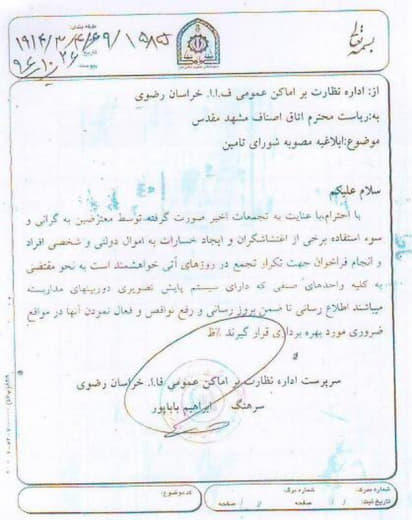 بسمه تعالی
طبقه بندی:
۱۹۱۴/۳/۴/۶۹/۱۵۸۵
تاریخ
۹۶/۱۰/۲۶
پیوست:
از: اداره نظارت بر اماکن عمومی ف.ا.ا. خراسان رضوی
به:ریاست محترم اتاق اصناف مشهد مقدس
موضوع:ابلاغیه مصوبه شورای تامین
سلام علیکم
با احترام،با عنایت به تجمعات اخیر صورت گرفته،توسط معترضین به گرانی و
سوء استفاده برخی از اغتشاشگران و ایجاد خسارات به اموال دولتی و شخصی افراد
و انجام فراخوان جهت تکرار تجمع در روزهای آتی خواهشمند است به نحو مقتضی
به کلیه واحدهای صنفی که دارای سیستم پایش تصویری دوربینهای مداربسته
میباشند اطلاع رسانی تا ضمن بروز رسانی و رفع نواقص و فعال نمودن آنها در مواقع
ضروری مورد بهره برداری قرار گیرند ٪ظ
سرپرست اداره نظارت بر اماکن عمومی فا.ا. خراسان رضوی
سرهنگ ابراهیم باباپور
شماره مدرک:
شماره برگ:
کد موضوع:
تاریخ ثبت: / /
صفحه از صفحه